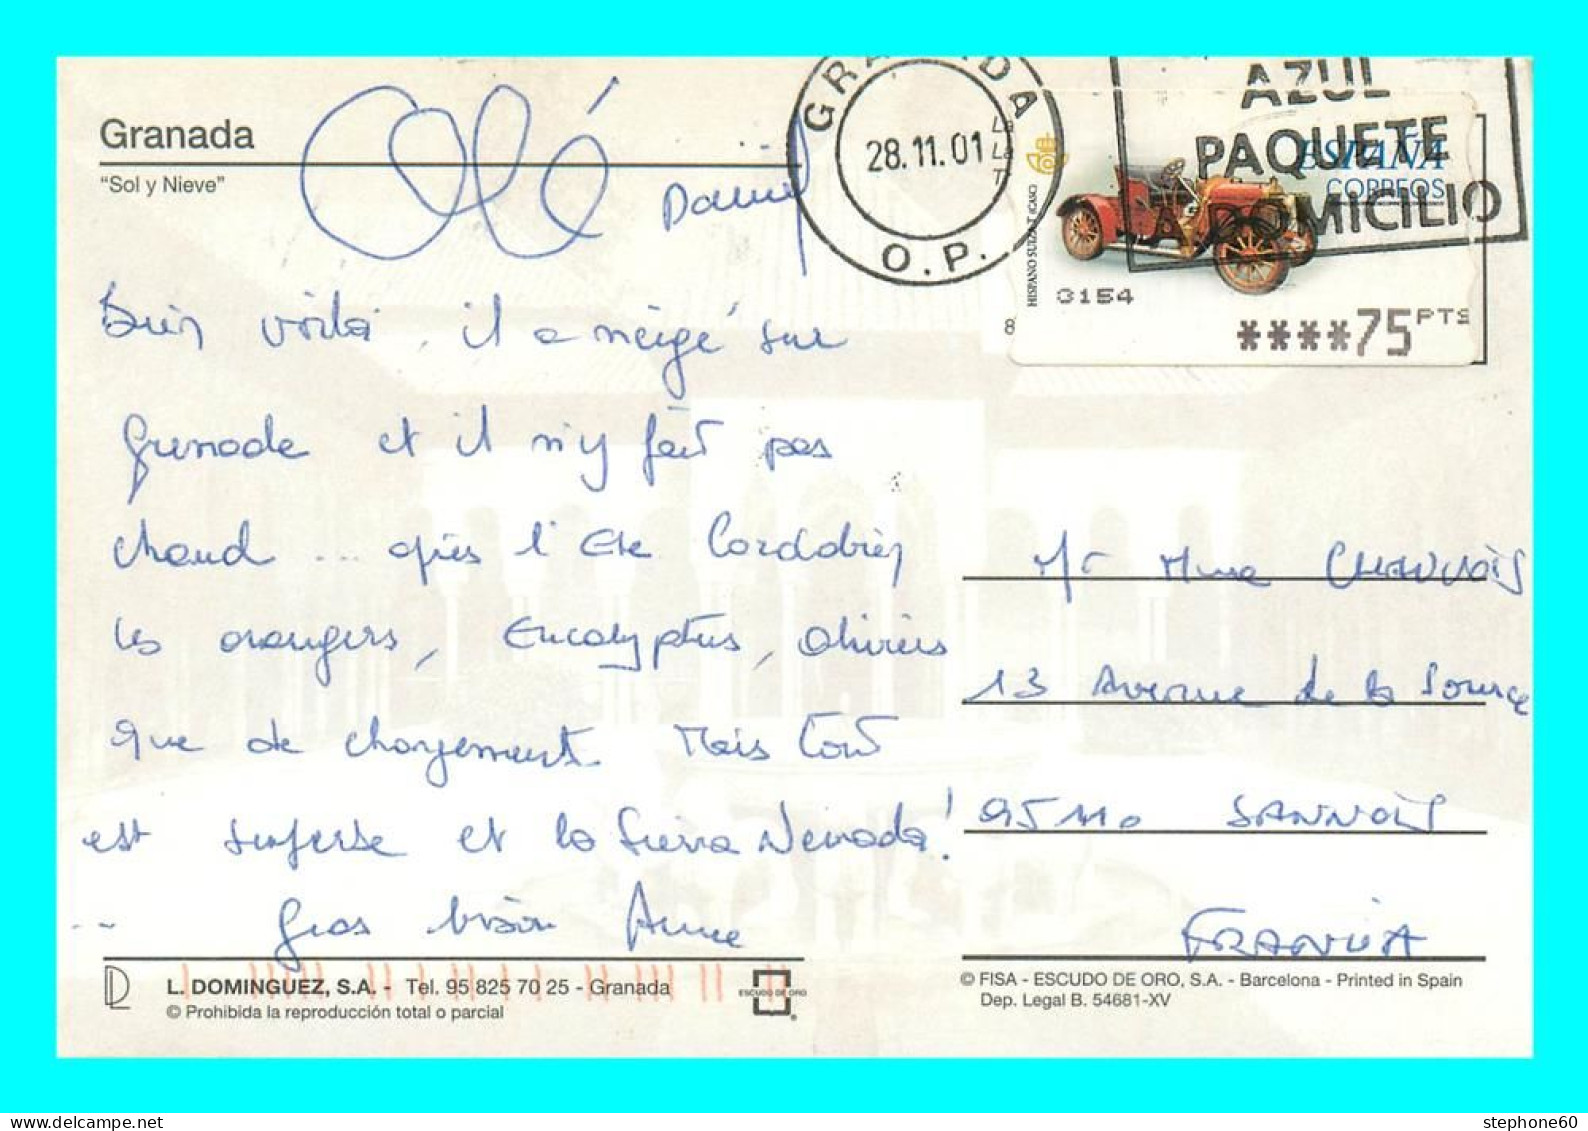 Granada
"Sol y Nieve"
Olé
Daniel
Bien voilà, il a neigé sur
Grenade et il n'y fait pas
chaud ... après l'été Cordobien
les orangers, Eucalyptus, oliviers
que de changement. Mais tout
est superbe et la Sierra Nevada!
.. Gros bisou Anne
GRANADA
28.11.01
O.P.
AZUL
PAQUETE
A DOMICILIO
ESPAÑA
CORREOS
HISPANO SUIZA T
0154
****75 PTS
8
Mr Mme CHAUVOIS
13 Avenue de la Source
95110 SANNOIS
FRANCIA
L. DOMINGUEZ, S.A. - Tel. 95 825 70 25 - Granada
© Prohibida la reproducción total o parcial
ESCUDO DE ORO
®
© FISA - ESCUDO DE ORO, S.A. - Barcelona - Printed in Spain
Dep. Legal B. 54681-XV
stephone60